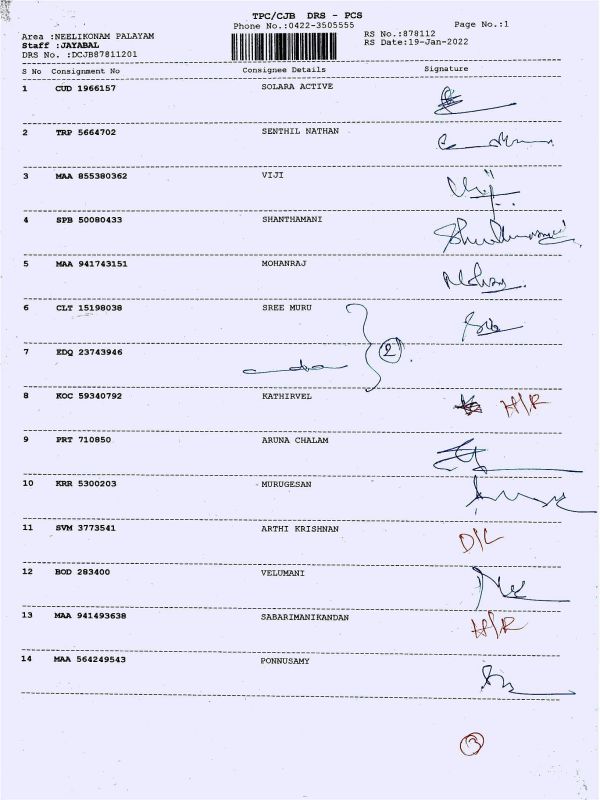 TPC/CJB DRS - PCS
Phone No.:0422-3505555
Page No.:1
Area :NEELIKONAM PALAYAM
RS No.:878112
Staff :JAYABAL
RS Date:19-Jan-2022
DRS No. :DCJB87811201
S No Consignment No Consignee Details Signature
1 CUD 1966157 SOLARA ACTIVE
2 TRP 5664702 SENTHIL NATHAN
3 MAA 855380362 VIJI
4 SPB 50080433 SHANTHAMANI
5 MAA 941743151 MOHANRAJ
6 CLT 15198038 SREE MURU
7 EDQ 23743946 2
8 KOC 59340792 KATHIRVEL H/R
9 PRT 710850 ARUNA CHALAM
10 KRR 5300203 MURUGESAN
11 SVM 3773541 ARTHI KRISHNAN D/L
12 BOD 283400 VELUMANI
13 MAA 941493638 SABARIMANIKANDAN H/R
14 MAA 564249543 PONNUSAMY
13